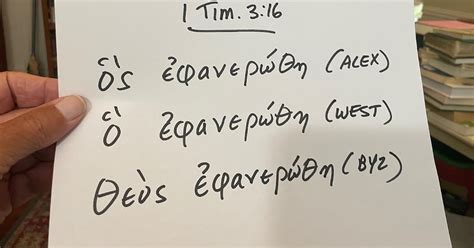 1 Tim. 3:16
ὃς ἐφανερώθη (ALEX)
ὃ ἐφανερώθη (WEST)
θεὸς ἐφανερώθη (BYZ)